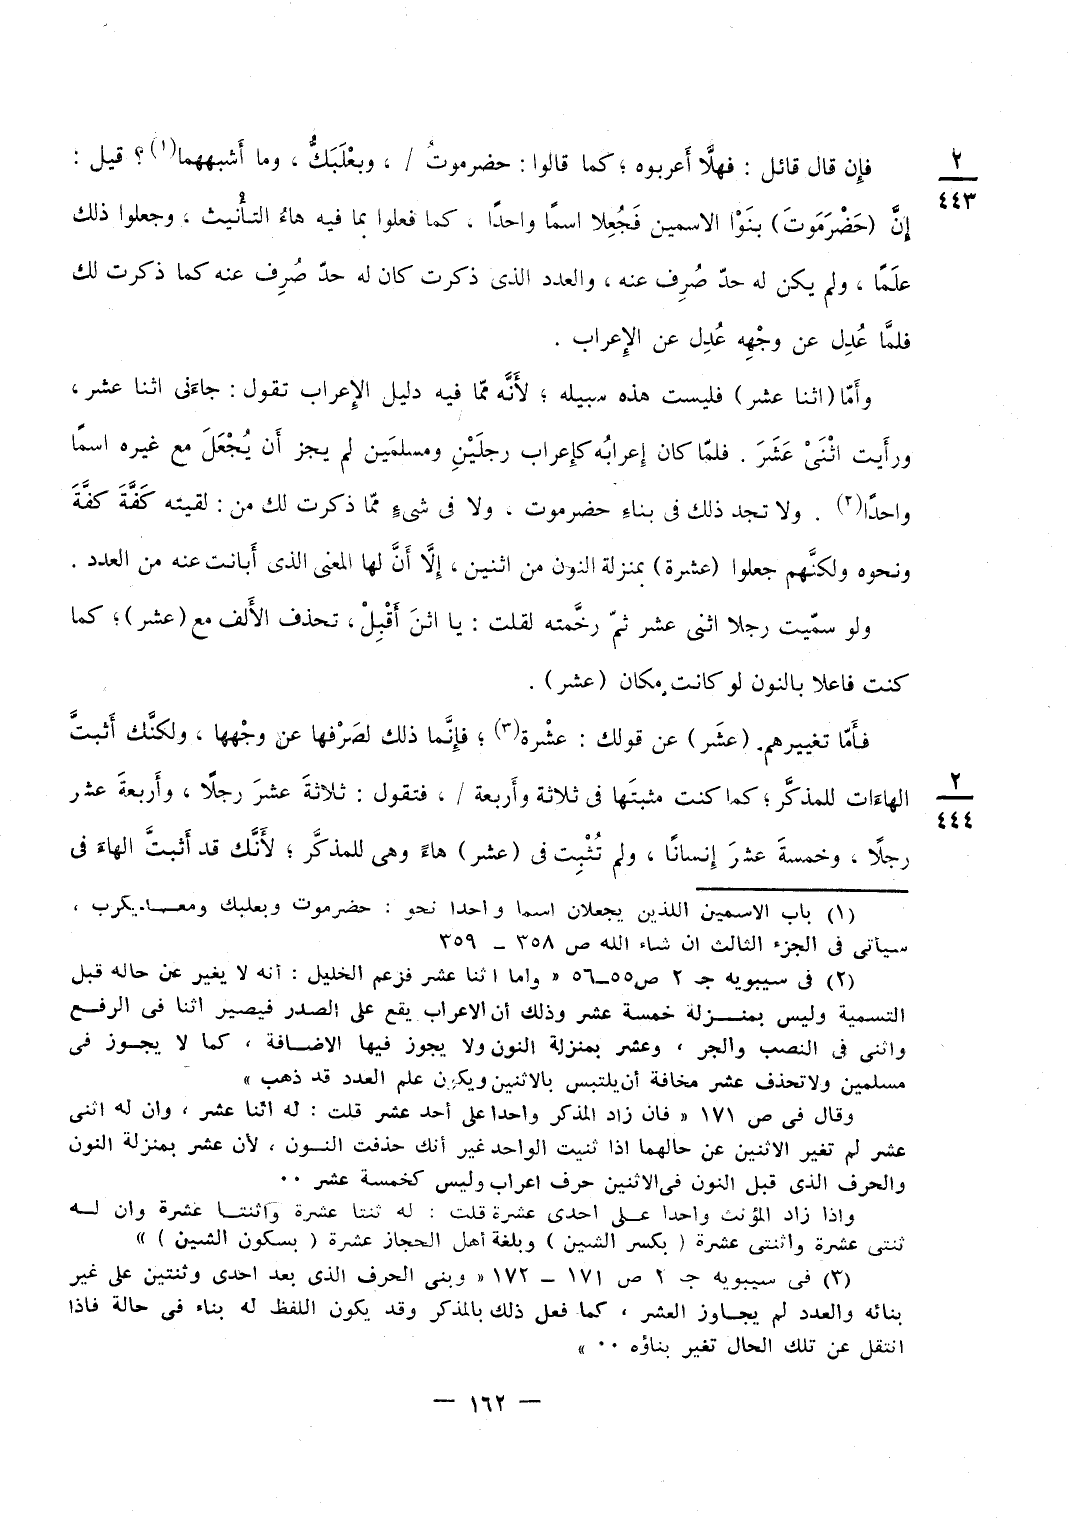 ٢
٤٤٣
فإن قال قائل : فهلَّا أعربوه ؛ كما قالوا : حضرموتُ / ، وبعْلَبَكُّ ، وما أشبههما(١) ؟ قيل :
إنَّ (حَضْرَمَوتَ) بنَوْا الاسمين فَجُعِلا اسمًا واحدًا . كما فعلوا بما فيه هاءُ التأْنيث ، وجعلوا ذلك
علَمًا ، ولم يكن له حدّ صُرِف عنه ، والعدد الذى ذكرت كان له حدّ صُرِف عنه كما ذكرت لك
فلمَّا عُدِل عن وجْهِه عُدِل عن الإعراب .
وأمّا (اثنا عشر) فليست هذه سبيله ؛ لأَنَّه ممّا فيه دليل الإعراب تقول : جاءَنى اثنا عشر ،
ورأيت اثْنَىْ عَشَرَ . فلمّا كان إعرابُه كإعراب رجلَيْنِ ومسلمَين لم يجز أن يُجْعَلَ مع غيره اسمًا
واحدًا(٢) . ولا تجد ذلك فى بناءِ حضرموت ، ولا فى شىءٍ ممّا ذكرت لك من : لقيته كَفَّةَ كفَّةَ
ونحوه ولكنَّهم جعلوا (عشرة) بمنزلة النون من اثنين ، إلَّا أنَّ لها المعنى الذى أبانت عنه من العدد .
ولو سمّيت رجلا اثنى عشر ثمّ رخَّمته لقلت : يا اثنَ أَقْبِلْ ، تحذف الأَلف مع (عشر) ؛ كما
كنت فاعلا بالنون لو كانت مكان (عشر) .
فأمّا تغييرهم (عشَر) عن قولك : عشْرة(٣) ؛ فإنَّما ذلك لصَرْفها عن وجْهها ، ولكنَّك أثبتَّ
٢
٤٤٤
الهاءَات للمذكَّر ؛ كما كنت مثبتَها فى ثلاثة وأربعة / ، فتقول : ثلاثةَ عشرَ رجلًا ، وأَربعةَ عشر
رجلًا ، وخمسةَ عشرَ إنسانًا ، ولم تُثْبِت فى (عشر) هاءً وهى للمذكَّر ؛ لأَنَّك قد أَثبتَّ الهاءَ فى
(١) باب الاسمين اللذين يجعلان اسما واحدا نحو : حضرموت وبعلبك ومعديكرب ،
سيأتى فى الجزء الثالث ان شاء الله ص ٣٥٨ ــ ٣٥٩
(٢) فى سيبويه جـ ٢ ص٥٥ــ٥٦ « واما اثنا عشر فزعم الخليل : أنه لا يغير عن حاله قبل
التسمية وليس بمنـــزلة خمسة عشر وذلك أن الاعراب يقع على الصدر فيصير اثنا فى الرفــع
واثنى فى النصب والجر ، وعشر بمنزلة النون ولا يجوز فيها الاضــافة ، كما لا يجــوز فى
مسلمين ولا تحذف عشر مخافة أن يلتبس بالاثنين ويكون علم العدد قد ذهب »
وقال فى ص ١٧١ « فان زاد المذكر واحدا على أحد عشر قلت : له اثنا عشر ، وان له اثنى
عشر لم تغير الاثنين عن حالهما اذا ثنيت الواحد غير أنك حذفت النــون ، لأن عشر بمنزلة النون
والحرف الذى قبل النون فى الاثنين حرف اعراب وليس كخمسة عشر ٠٠
واذا زاد المؤنث واحدا عــلى احدى عشرة قلت : له ثنتا عشرة واثنتــا عشرة وان لــه
ثنتى عشرة واثنتى عشرة ( بكسر الشين ) وبلغة أهل الحجاز عشرة ( بسكون الشين ) »
(٣) فى سيبويه جـ ٢ ص ١٧١ ــ ١٧٢ « وبنى الحرف الذى بعد احدى وثنتين على غير
بنائه والعدد لم يجــاوز العشر ، كما فعل ذلك بالمذكر وقد يكون اللفظ له بناء فى حالة فاذا
انتقل عن تلك الحال تغير بناؤه ٠٠ »
— ١٦٢ —